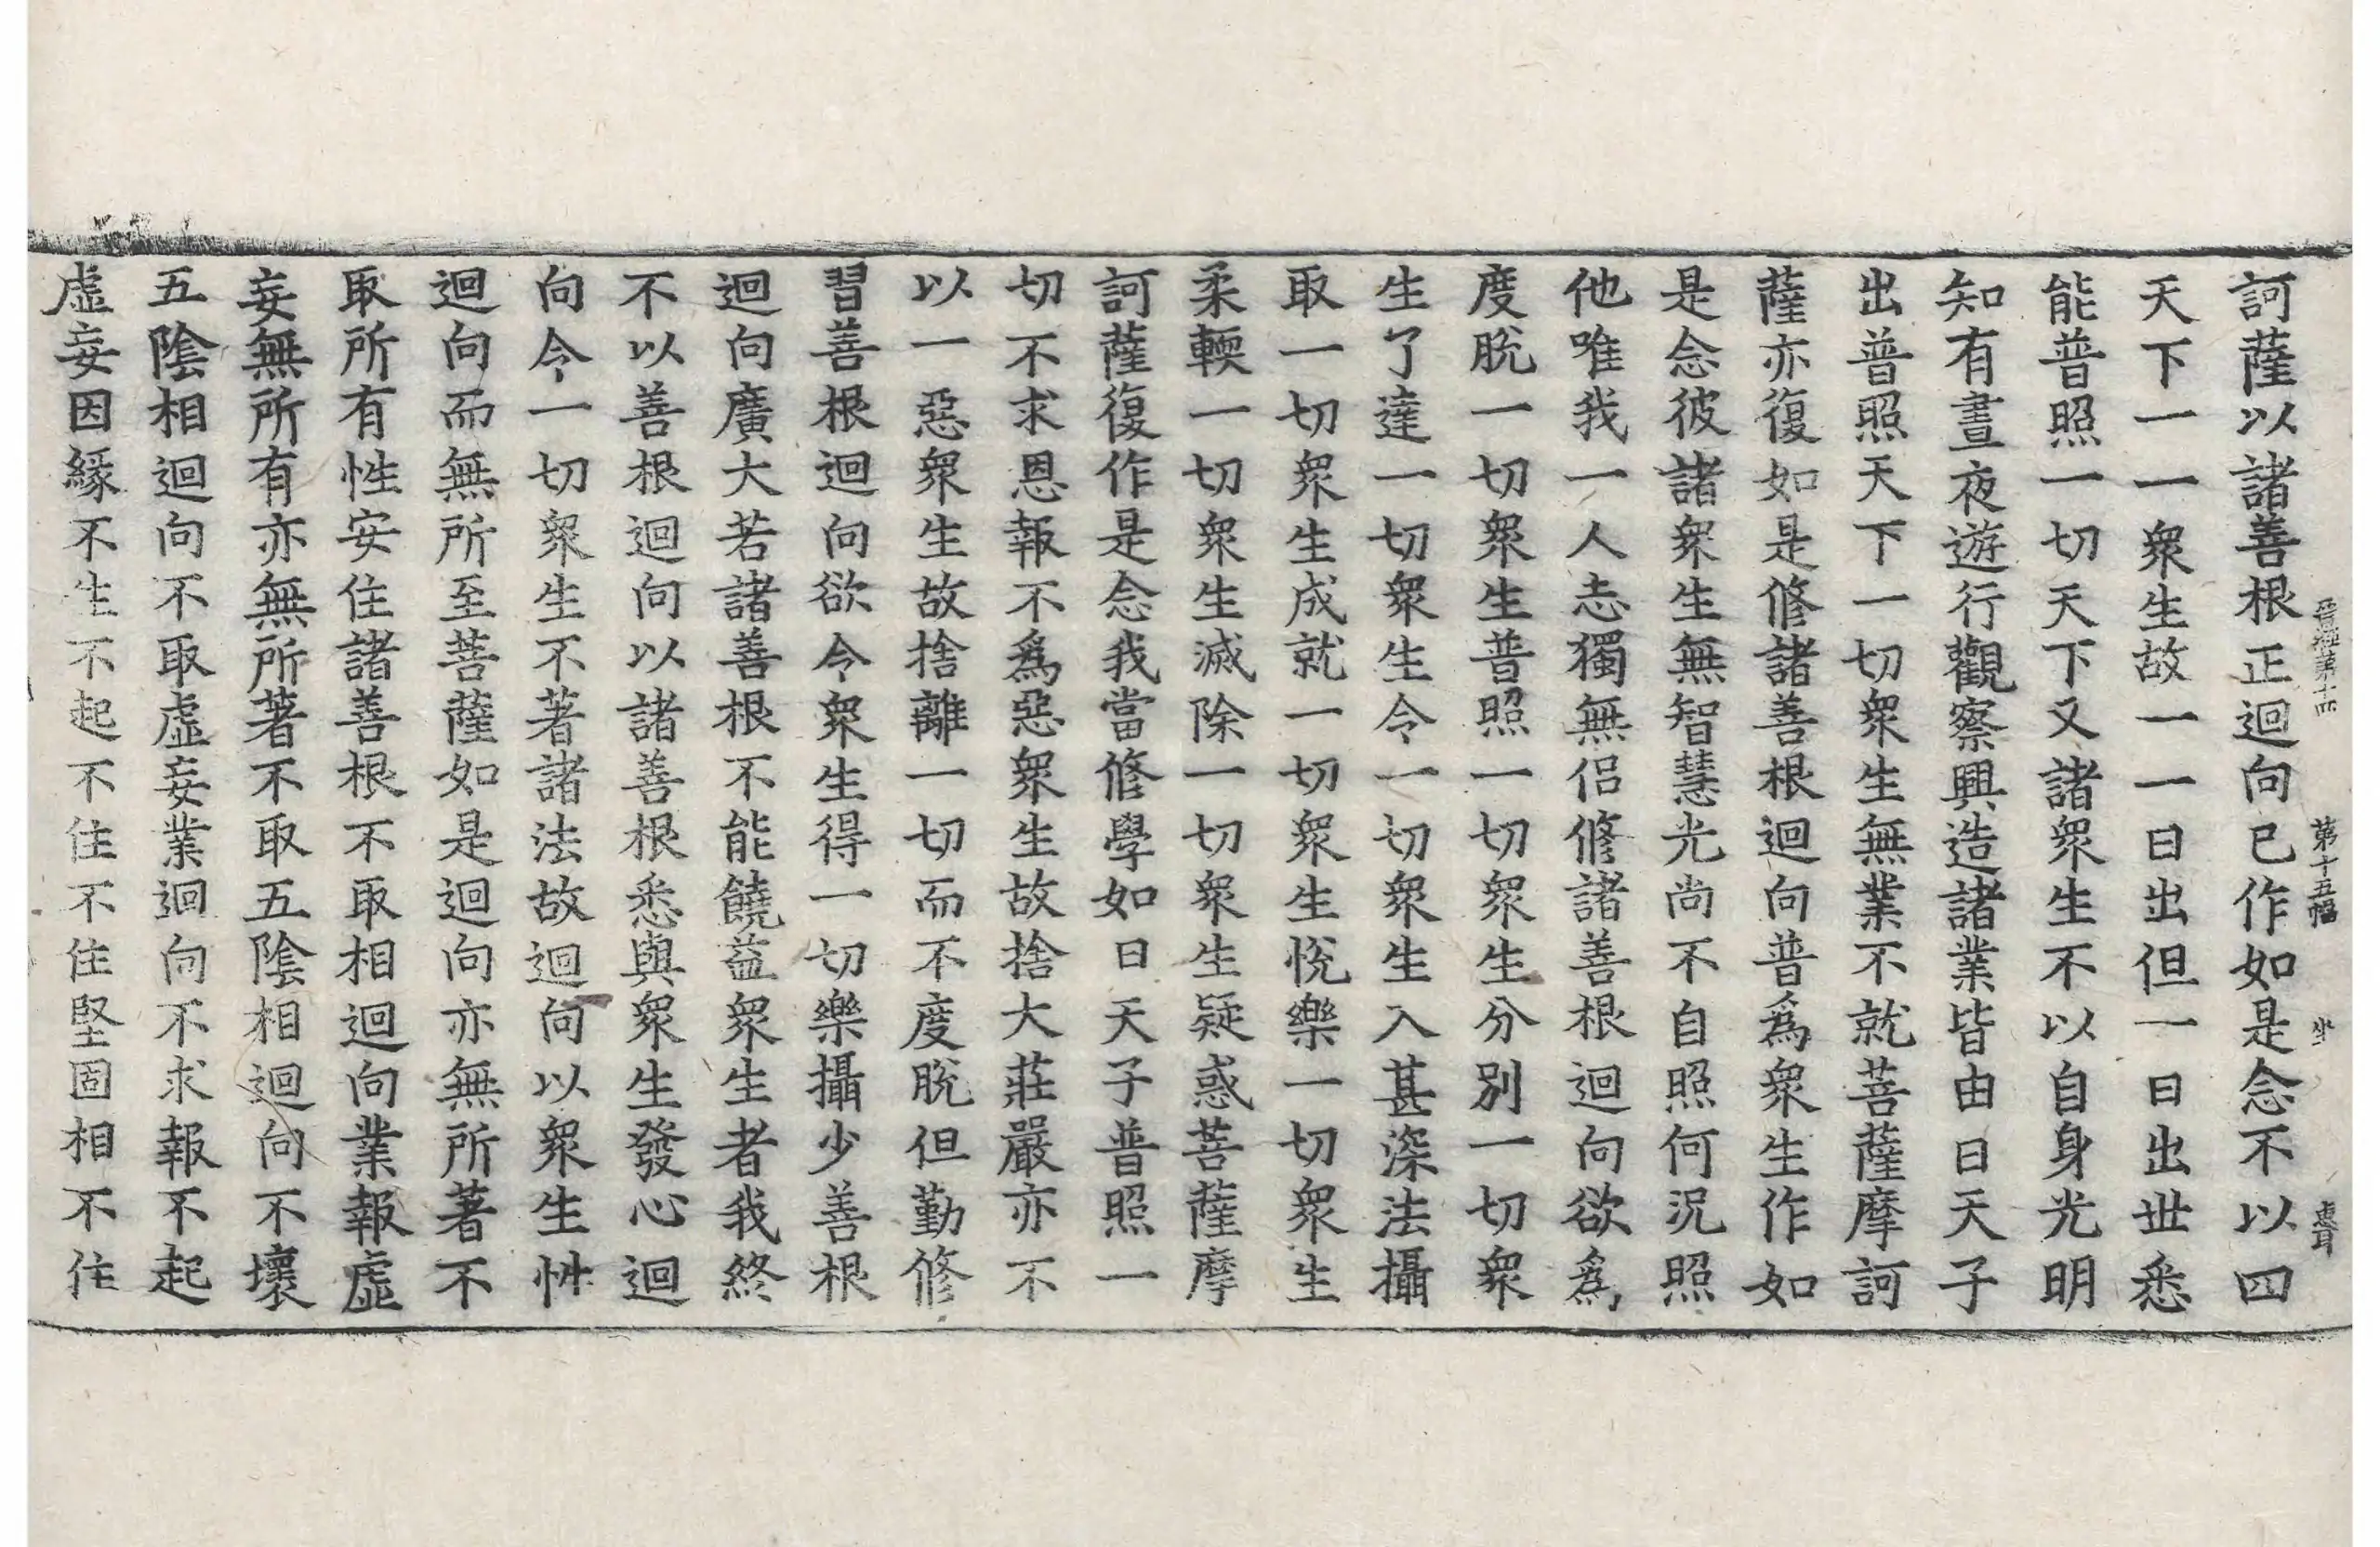 晉經第十四 第十五幅 坐 惠耳
訶薩以諸善根正迴向已作如是念不以四
天下一一眾生故一一日出但一日出世悉
能普照一切天下又諸眾生不以自身光明
知有晝夜遊行觀察興造諸業皆由日天子
出普照天下一切眾生無業不就菩薩摩訶
薩亦復如是修諸善根迴向普爲眾生作如
是念彼諸眾生無智慧光尚不自照何況照
他唯我一人志獨無侣修諸善根迴向欲爲
度脫一切眾生普照一切眾生分別一切眾
生了達一切眾生令一切眾生入甚深法攝
取一切眾生成就一切眾生悅樂一切眾生
柔輭一切眾生滅除一切眾生疑惑菩薩摩
訶薩復作是念我當修學如日天子普照一
切不求恩報不爲惡眾生故捨大莊嚴亦不
以一惡眾生故捨離一切而不度脫但勤修
習善根迴向欲令眾生得一切樂攝少善根
迴向廣大若諸善根不能饒益眾生者我終
不以善根迴向以諸善根悉與眾生發心迴
向令一切眾生不著諸法故迴向以眾生性
迴向而無所至菩薩如是迴向亦無所著不
取所有性安住諸善根不取相迴向業報虛
妄無所有亦無所著不取五陰相迴向不壞
五陰相迴向不取虛妄業迴向不求報不起
虛妄因緣不生不起不住不住堅固相不住